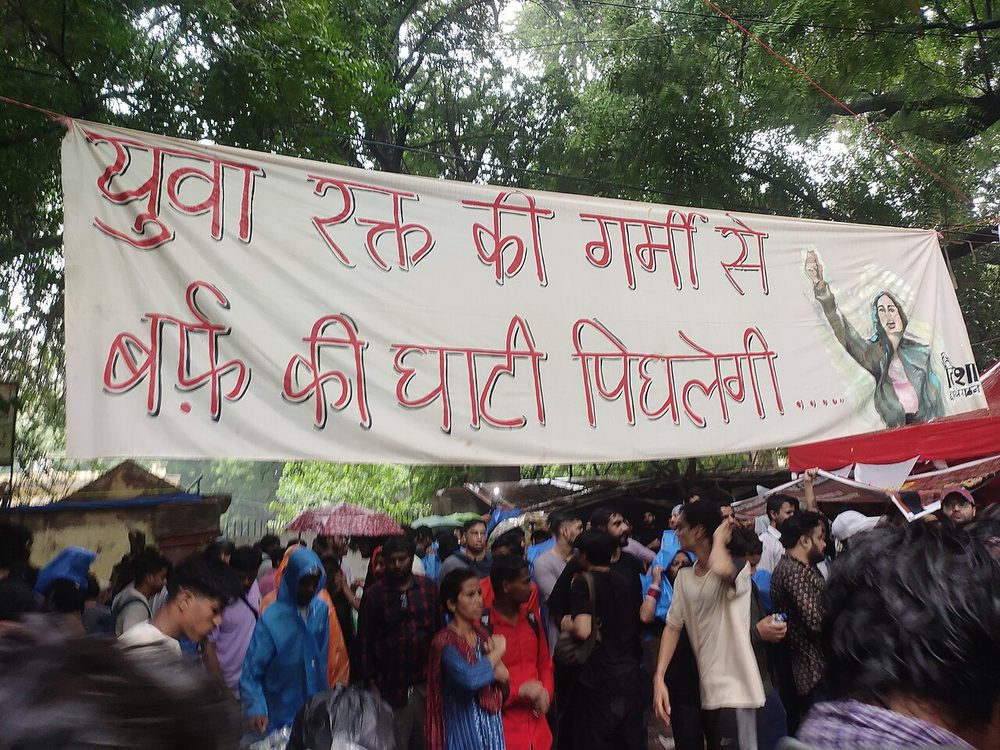 युवा रक्त की गर्मी से
बर्फ़ की घाटी पिघलेगी.....